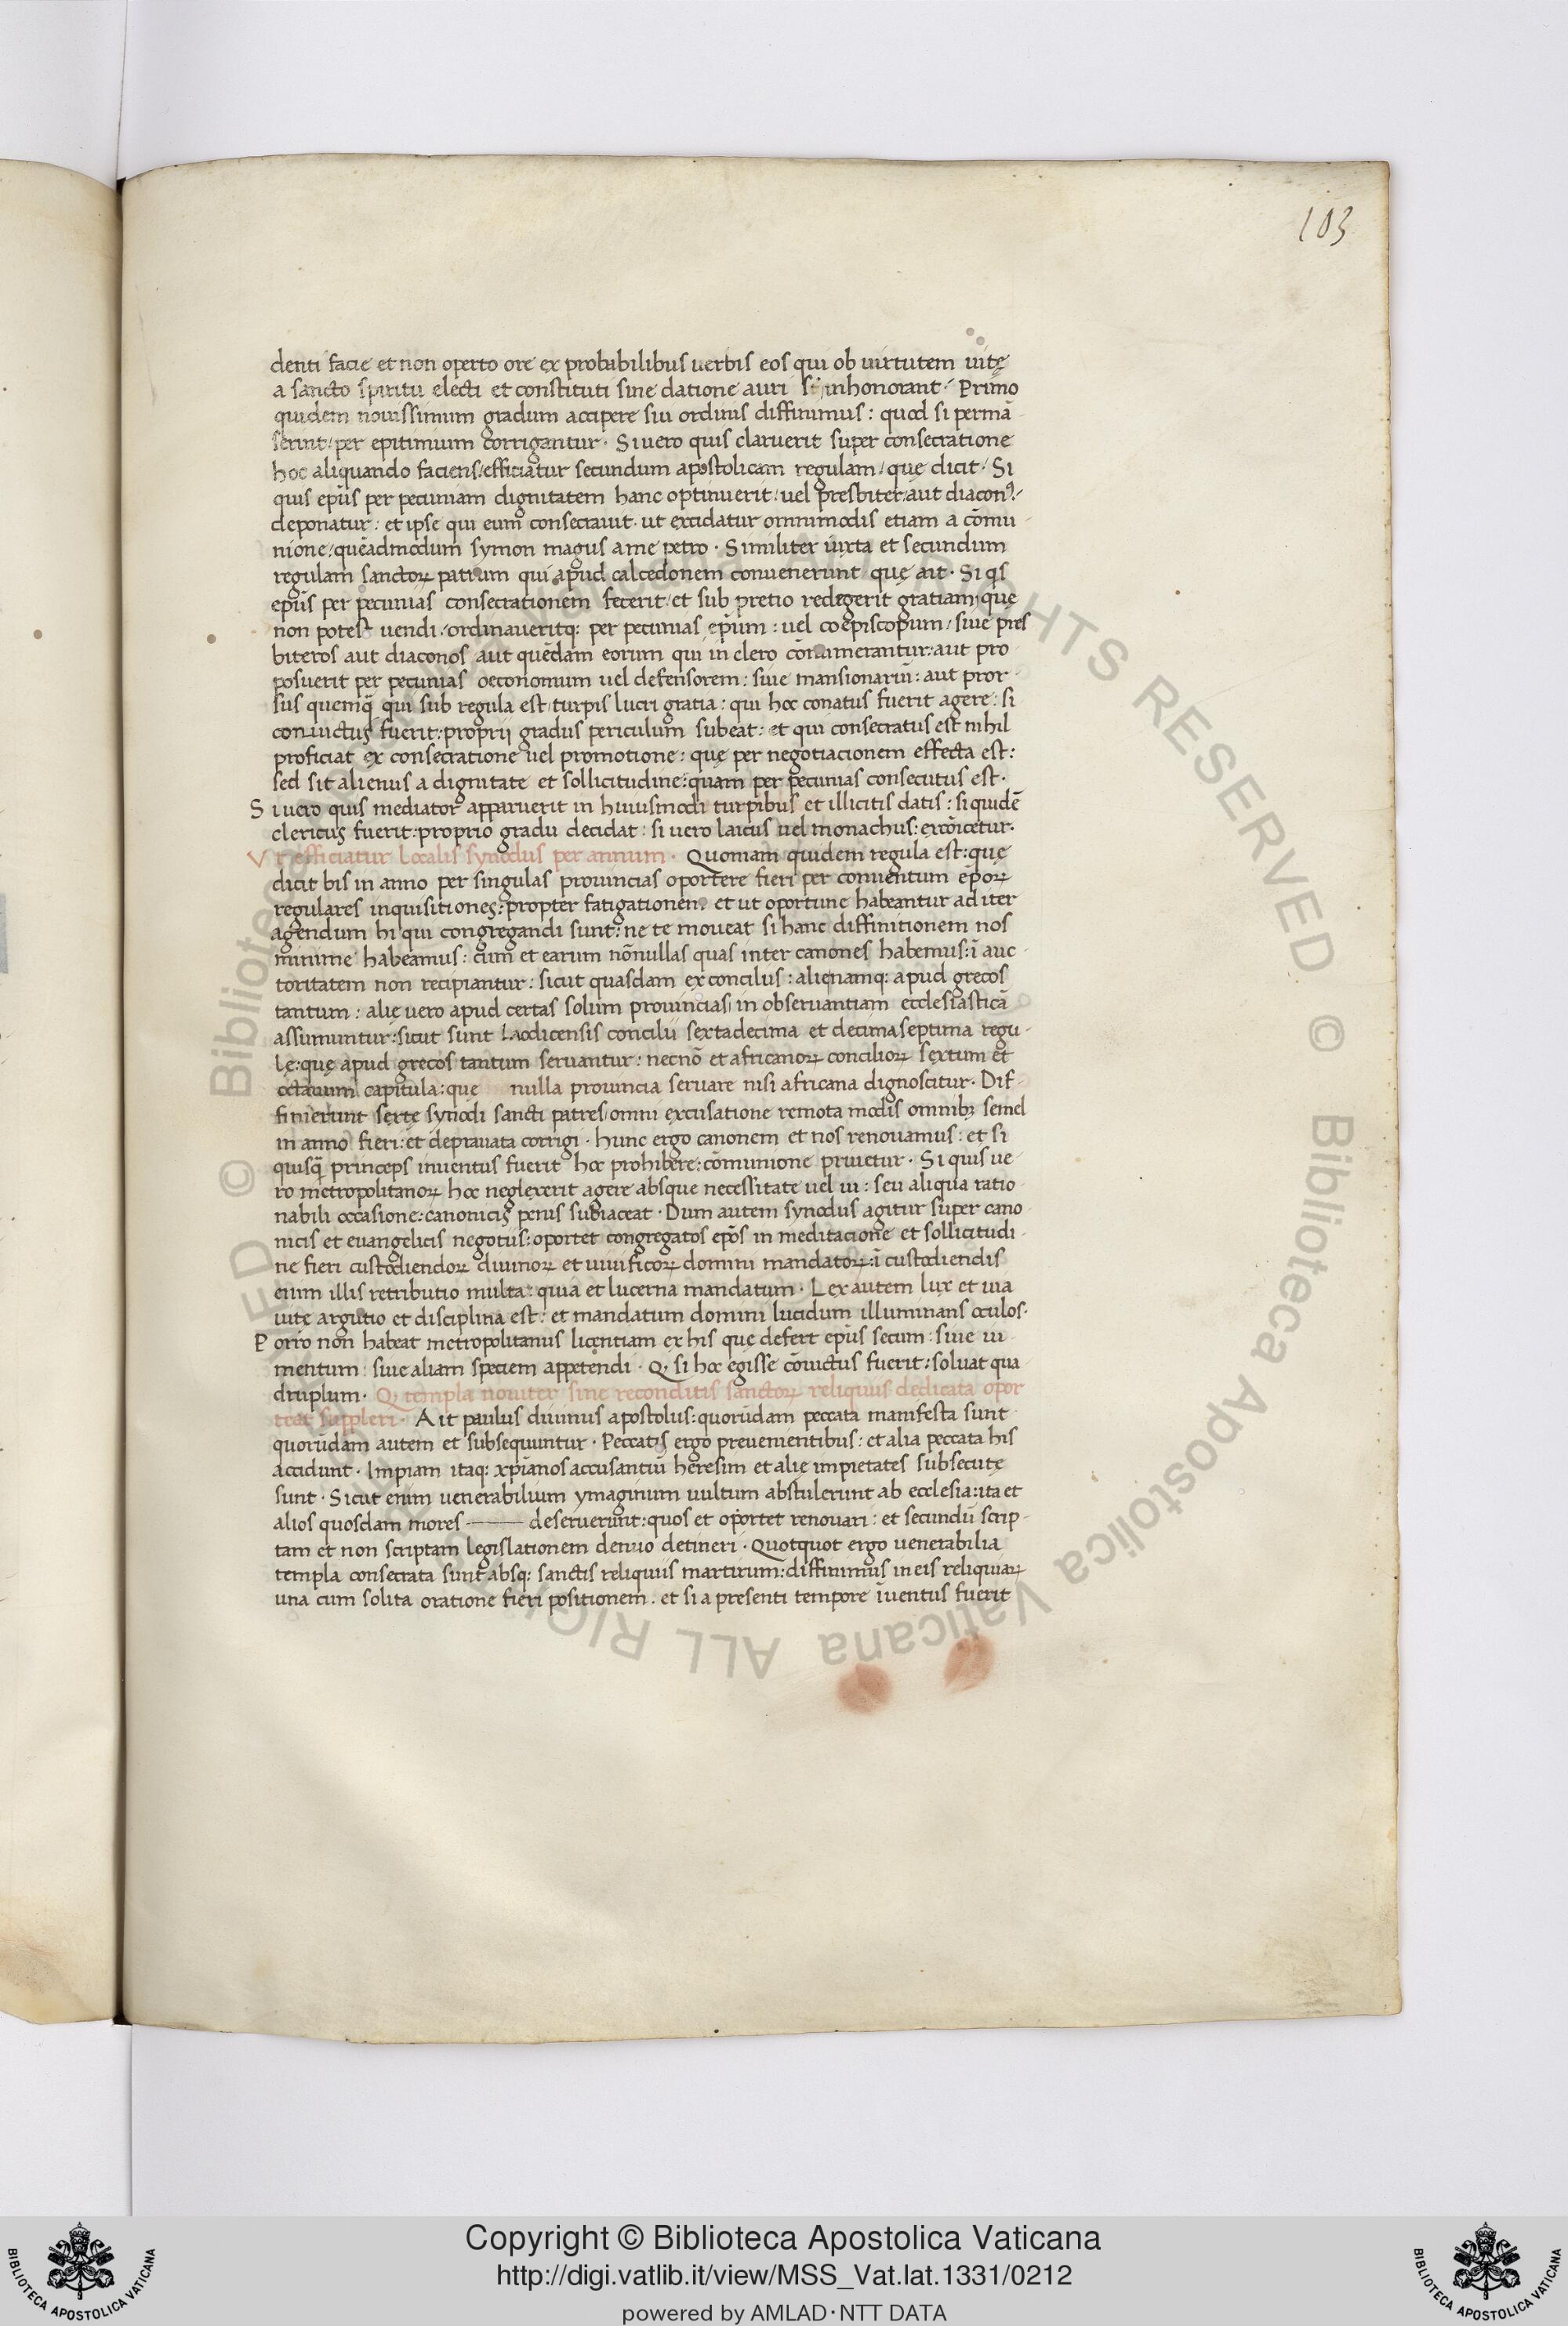 103
denti facie et non operto ore ex probabilibus uerbis eos qui ob uirtutem uitę
a sancto spiritu electi et constituti sine datione auri st̄ inhonorant. Primo
quidem nouissimum gradum accipere sui ordinis diffinimus: quod si permā
serint/ per epitimium corrigantur. Si uero quis claruerit super consecratione
hoc aliquando faciens/ efficiatur secundum apostolicam regulam/ quę dicit. Si
quis ep̄us per pecuniam dignitatem hanc optinuerit/ uel presbiter/ aut diaconꝰ/
deponatur: et ipse qui eum consecrauit. ut excidatur omnimodis etiam a cōmu
nione/ quēadmodum symon magus a me petro. Similiter iuxta et secundum
regulam sanctoꝝ patrum qui apud calcedonem conuenerunt quę ait. Si qs
ep̄us per pecunias consecrationem fecerit/ et sub pretio redegerit gratiam quę
non potest uendi/ ordinaueritq; per pecunias ep̄um: uel coepiscopum/ siue pres
biteros aut diaconos aut quēdam eorum qui in clero cōnumerantur: aut pro
posuerit per pecunias oeconomum uel defensorem: siue mansionariū: aut pror
sus quemq̄ qui sub regula est/ turpis lucri gratia: qui hoc conatus fuerit agere: si
conuictus fuerit: proprij gradus periculum subeat: et qui consecratus est nihil
proficiat ex consecratione uel promotione: quę per negotiacionem effecta est:
sed sit alienus a dignitate et sollicitudine: quam per pecunias consecutus est.
Si uero quis mediator apparuerit in huiusmodi turpibus et illicitis datis: si quidē
clericus fuerit: proprio gradu decidat: si uero laicus uel monachus: excōicetur.
Vt efficiatur Localis synodus per annum. Quoniam quidem regula est: quę
dicit bis in anno per singulas prouincias oportere fieri per conuentum ep̄oꝝ
regulares inquisitiones: propter fatigationem. et ut oportune habeantur ad iter
agendum hi qui congregandi sunt: ne te moueat si hanc diffinitionem nos
minime habeamus: cum et earum nōnullas quas inter canones habemus: ī auc
toritatem non recipiantur: sicut quasdam ex conciliis: alienamq; apud grecos
tantum: alię uero apud certas solum prouincias in obseruantiam ecclesiasticā
assumuntur: sicut sunt Laodicensis concilii sextadecima et decimaseptima regu
lę: quę apud grecos tantum seruantur: necnō et africanoꝝ concilioꝝ sextum et
octauum capitula: que nulla prouincia seruare nisi africana dignoscitur. Dif
finierunt sextę synodi sancti patres/ omni excusatione remota modis omnibꝫ semel
in anno fieri: et deprauata corrigi. hunc ergo canonem et nos renouamus: et si
quisq̄ princeps inuentus fuerit hoc prohibere: cōmunione priuetur. Si quis ue
ro metropolitanoꝝ hoc neglexerit agere absque necessitate uel ui: seu aliqua ratio
nabili occasione: canonicis penis subiaceat. Dum autem synodus agitur super cano
nicis et euangelicis negotiis: oportet congregatos ep̄os in meditacione et sollicitudi
ne fieri custodiendoꝝ diuinoꝝ et uiuificoꝝ domini mandatoꝝ: ī custodiendis
enim illis retributio multa: quia et lucerna mandatum. Lex autem lux et uia
uite argutio et disciplina est: et mandatum domini lucidum illuminans oculos.
Porro non habeat metropolitanus licentiam ex his que defert ep̄us secum: siue iu
mentum: siue aliam speciem appetendi. Q. si hoc egisse cōuictus fuerit: soluat qua
druplum. Q. templa nouiter sine reconditis sanctoꝝ reliquiis dedicata opor
teat suppleri. Ait paulus diuinus apostolus: quorūdam peccata manifesta sunt
quorūdam autem et subsequuntur. Peccatis ergo preuenientibus: et alia peccata his
accidunt. Impiam itaq; xp̄ianos accusantiū heresim et alię impietates subsecutę
sunt. Sicut enim uenerabilium ymaginum uultum abstulerunt ab ecclesia: ita et
alios quosdam mores —— deseruerunt: quos et oportet renouari: et secundū scrip
tam et non scriptam legislationem denuo detineri. Quotquot ergo uenerabilia
templa consecrata sunt absq; sanctis reliquiis martirum: diffinimus in eis reliquiaꝝ
una cum solita oratione fieri positionem. et si a presenti tempore īuentus fuerit
© Biblioteca Apostolica Vaticana ALL RIGHTS RESERVED © Biblioteca Apostolica Vaticana ALL RIGHTS RESERVED
BIBLIOTECA APOSTOLICA VATICANA
Copyright © Biblioteca Apostolica Vaticana
http://digi.vatlib.it/view/MSS_Vat.lat.1331/0212
powered by AMLAD·NTT DATA
BIBLIOTECA APOSTOLICA VATICANA